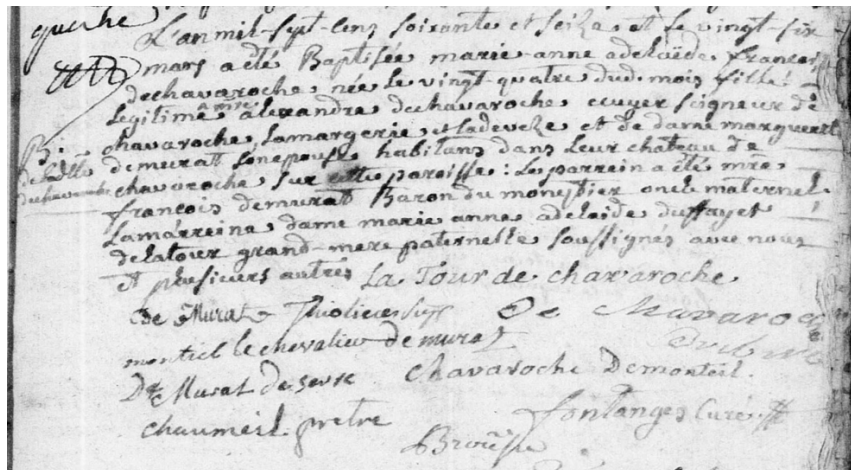 querhe
L'an mil sept cens soixante et seize et le vingt six
mars a eté Baptisée marie anne adelaïde françoise
dechavaroche née le vingt quatre dud. mois fille
legitime a mre alexandre dechavaroche ecuyer seigneur de
chavaroche, Lamargerie, et ladeveze et de dame marguerit
B:
de
demuratt son epouse habitans dans leur chateau de
chavaroche sur cette paroisse: Le parrein a eté mre
françois demurat Baron du monestier oncle maternel
Lamarreine dame marie anne adelaide duffayet
delatour grand-mere paternelle soussignés avec nous
et plusieurs autres La Tour de chavaroche
de Murat De Chavaroch
montiel le chevalier demurat
De Murat de serre chavaroche Demonteil
chaumeil pretre fontanges Curé